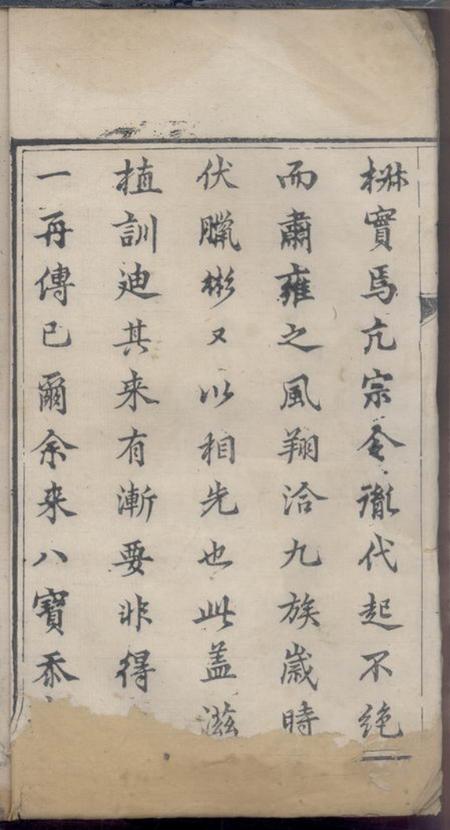 實焉亢宗令胤代起不绝
而肅雍之風翔洽九族歲時
伏臘彬又以相先也此盖滋
植訓迪其来有漸要非得
一再傳已爾余来八寶忝